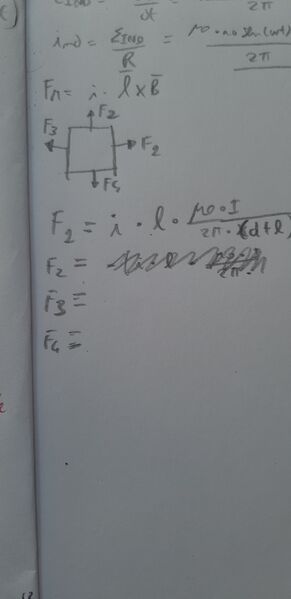 c)
ε_IND = dt 2π
i_IND = ε_IND / R = μ0 · n0 sen(ωt) / 2π
F_M = i · l̄ × B̄
F2
F3 F2
F4
F2 = i · l · μ0 · I / 2π · (d+l)
F2 =
F̄3 =
F̄4 =